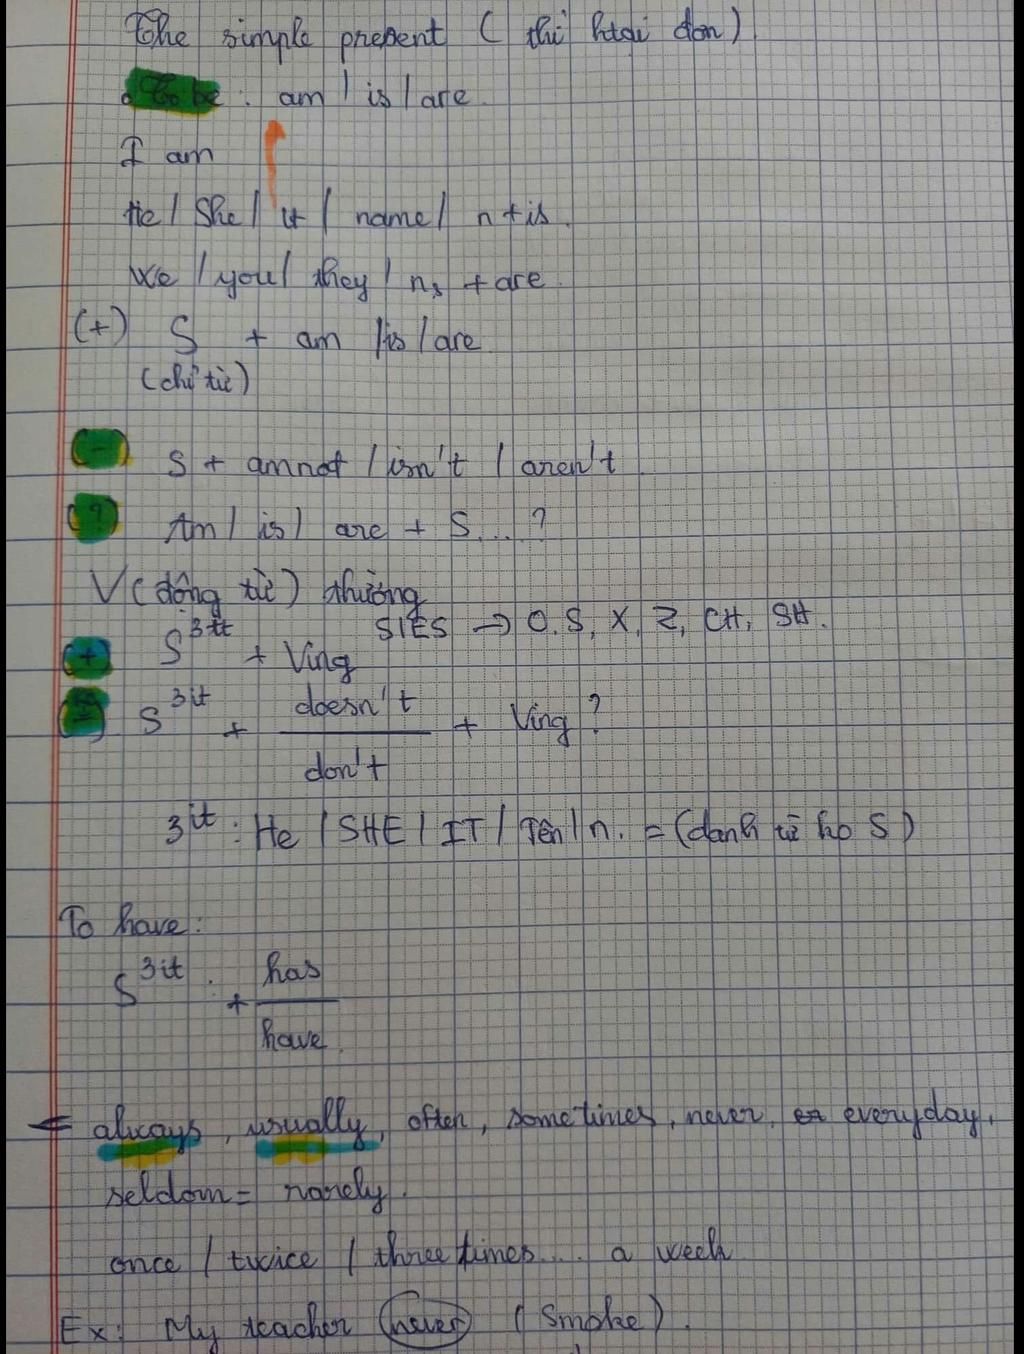 The simple present ( thì htại đơn)
• To be : am / is / are
I am
He / She / it / name / n + is
We / you / they / ns + are
(+) S + am / is / are
(chủ từ)
(-) S + amnot / isn't / aren't
(?) Am / is / are + S....?
V (động từ) thường
S/ES → O, S, X, Z, CH, SH.
(+) S 3it + Ving
S 3it + doesn't / don't + Ving ?
3it : He / SHE / IT / Tên / n. = (danh từ ko S)
To have :
S 3it + has / have
always, usually, often, sometimes, never, everyday,
seldom = rarely.
once / twice / three times.... a week
Ex: My teacher never (Smoke).